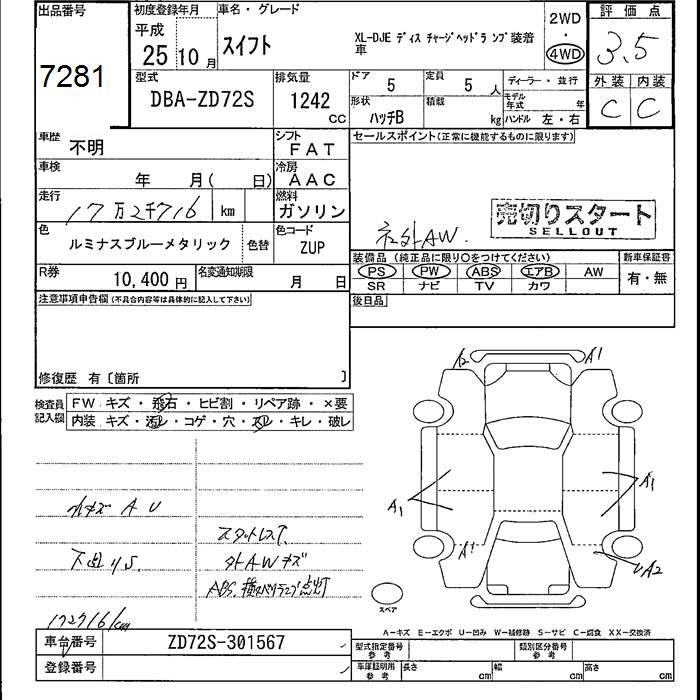 出品番号
7281
初度登録年月
平成
25 10 月
車名・グレード
スイフト
XL-DJE ディスチャージヘッドランプ装着車
2WD
・
4WD
評価点
3.5
外装 内装
C C
型式
DBA-ZD72S
排気量
1242 CC
ドア 5
定員 5 人
ディーラー・並行
形状 ハッチB
積載 kg
モデル年式 年
ハンドル 左・右
車歴 不明
シフト FAT
セールスポイント(正常に機能するものに限ります)
車検 年 月( 日)
冷房 AAC
走行 17万2千716 km
燃料 ガソリン
色 ルミナスブルーメタリック 色替
色コード ZUP
社外AW.
売切りスタート
SELLOUT
R券 10,400 円
名変通知期限 月 日
装備品 (純正品に限り〇をつけてください)
新車保証書
PS PW ABS エアB AW
有・無
SR ナビ TV カワ
後日品
注意事項申告欄(不具合内容等は具体的に記入して下さい)
修復歴 有〔箇所 〕
検査員記入欄
FW キズ・飛石・ヒビ割・リペア跡・×要
内装 キズ・汚レ・コゲ・穴・スレ・キレ・破レ
A1
A1
A1
A1
UA2
小キズAU
スタットレス
下回りS
外AWキズ
ABS.横スベリランプ点灯
172716km
スペア
A-キズ E-エクボ U-凹み W-補修跡 S-サビ C-腐食 XX-交換済
車台番号 ZD72S-301567
型式指定番号 参考
類別区分番号 参考
登録番号
車庫証明用 参考 長さ cm 幅 cm 高さ cm